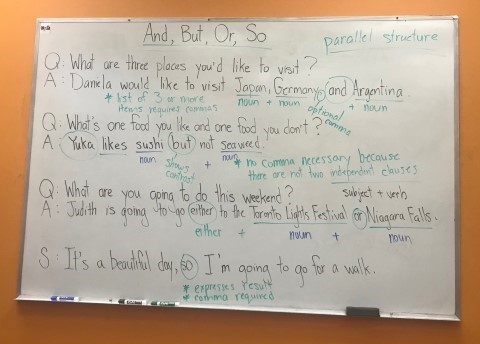 And, But, Or, So
parallel structure
Q: What are three places you'd like to visit?
A: Daniela would like to visit Japan, Germany, and Argentina.
* list of 3 or more items requires commas
noun + noun + noun
optional comma
Q: What's one food you like and one food you don't?
A: Yuka likes sushi but not seaweed.
noun + noun
shows contrast
* no comma necessary because
there are not two independent clauses
subject + verb
Q: What are you going to do this weekend?
A: Judith is going to go either to the Toronto Lights Festival or Niagara Falls.
either + noun + noun
S: It's a beautiful day, so I'm going to go for a walk.
* expresses result
* comma required